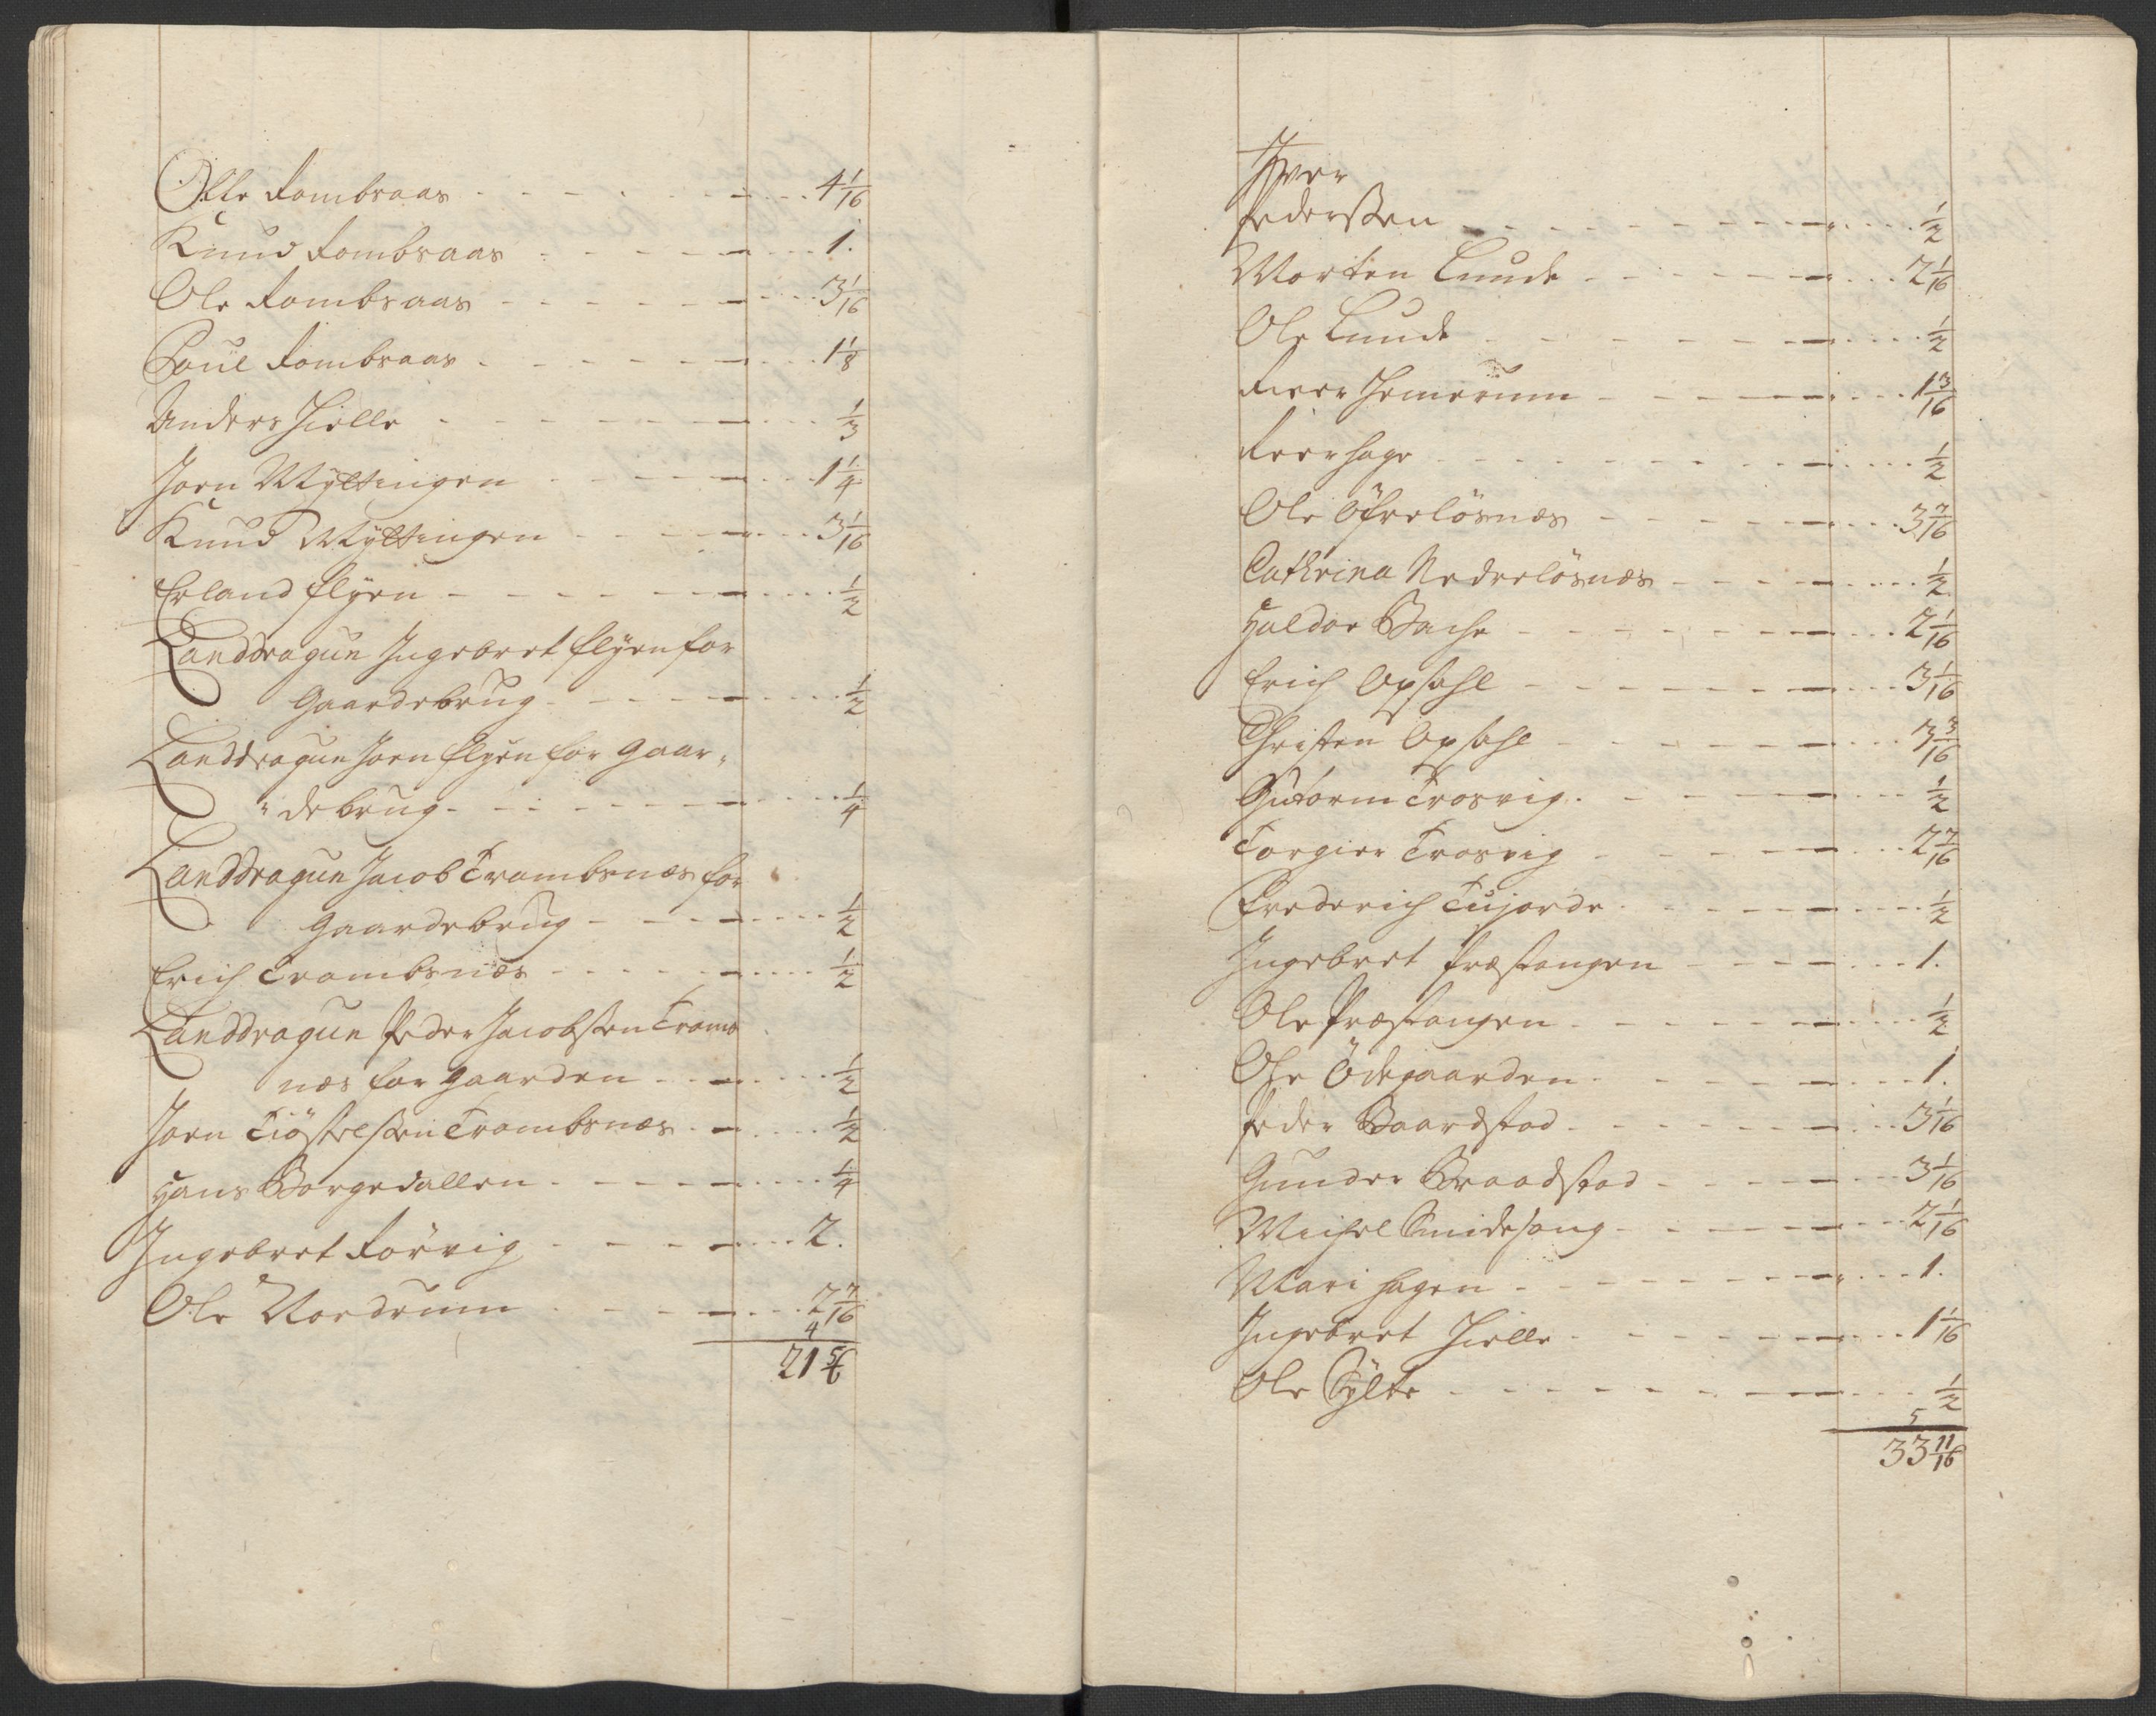 Olle Rombraas - - - - - - - 4 1/16
Knud Rombraas - - - - - - 1.
Ole Rombraas - - - - - - 3 1/16
Poul Rombraas - - - - - - 1 1/8
Anders Hielle - - - - - - 1/3
Joen Myttingen - - - - - 1 1/4
Knud Myttingen - - - - 3 1/16
Erland flyen - - - - - - 1/2
Landdragun Ingebret flyen for
Gaardebrug - - - - - 1/2
Landdragun Joen flyen for Gaar-
debrug - - - - - - - 1/4
Landdragun Jacob Trombsnæs for
Gaardebrug - - - - 1/2
Erich Trombsnæs - - - - - 1/2
Landdragun Peder Jacobsen Tromb
næs for Gaarden - - - 1/2
Joen Tiöstelsen Trombsnæs - - 1/2
Hans Borgedallen - - - - - 1/4
Ingebret Rörvig - - - - - 2.
Ole Nordrum - - - - - 2 7/16
4
21 5/6
Iver
Pedersen - - - - - - - - 1/2
Morten Lunde - - - - - - 2 1/16
Ole Lunde - - - - - - - 1/2
Reer Jemerum - - - - - 1 3/16
Reer hage - - - - - - - - 1/2
Ole Öfrelösnæs - - - - - 3 7/16
Cathrina Nedrelösnæs - - - - 1/2
Haldor Bache - - - - - - 2 1/16
Erich Opsahl - - - - - - - 3 1/16
Christen Opsahl - - - - - - 3 3/16
Gutorm Trosvig - - - - - - 1/2
Torgier Trosvig - - - - - - 2 7/16
Frederich Tujorde - - - - - - 1/2
Ingebret Præstangen - - - - 1.
Ole Præstangen - - - - - - 1/2
Ole Ödegaarden - - - - - - 1.
Peder Baardstad - - - - - - 3 1/16
Gunder Braadstad - - - - - 3 1/16
Michel Smidesang - - - - - 2 1/16
Mari hagen - - - - - - - 1.
Ingebret Hielle - - - - - - 1 1/16
Ole Sylte - - - - - - - - 1/2
5
33 11/16